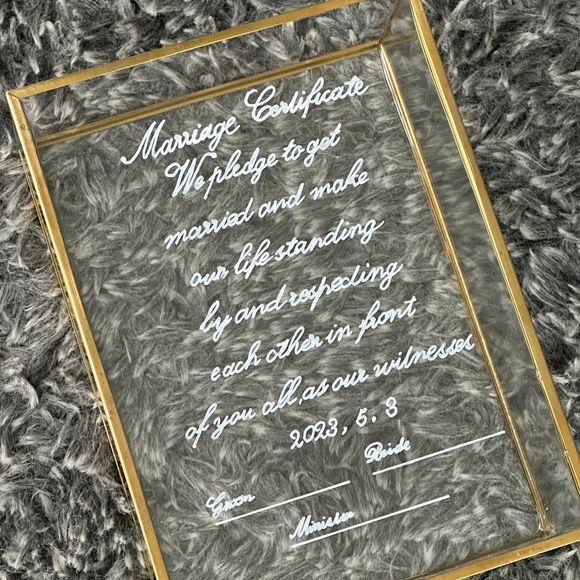 Marriage Certificate
We pledge to get
married and make
our life standing
by and respecting
each other in front
of you all, as our witnesses
2023, 5, 3
Bride
Groom
Minister